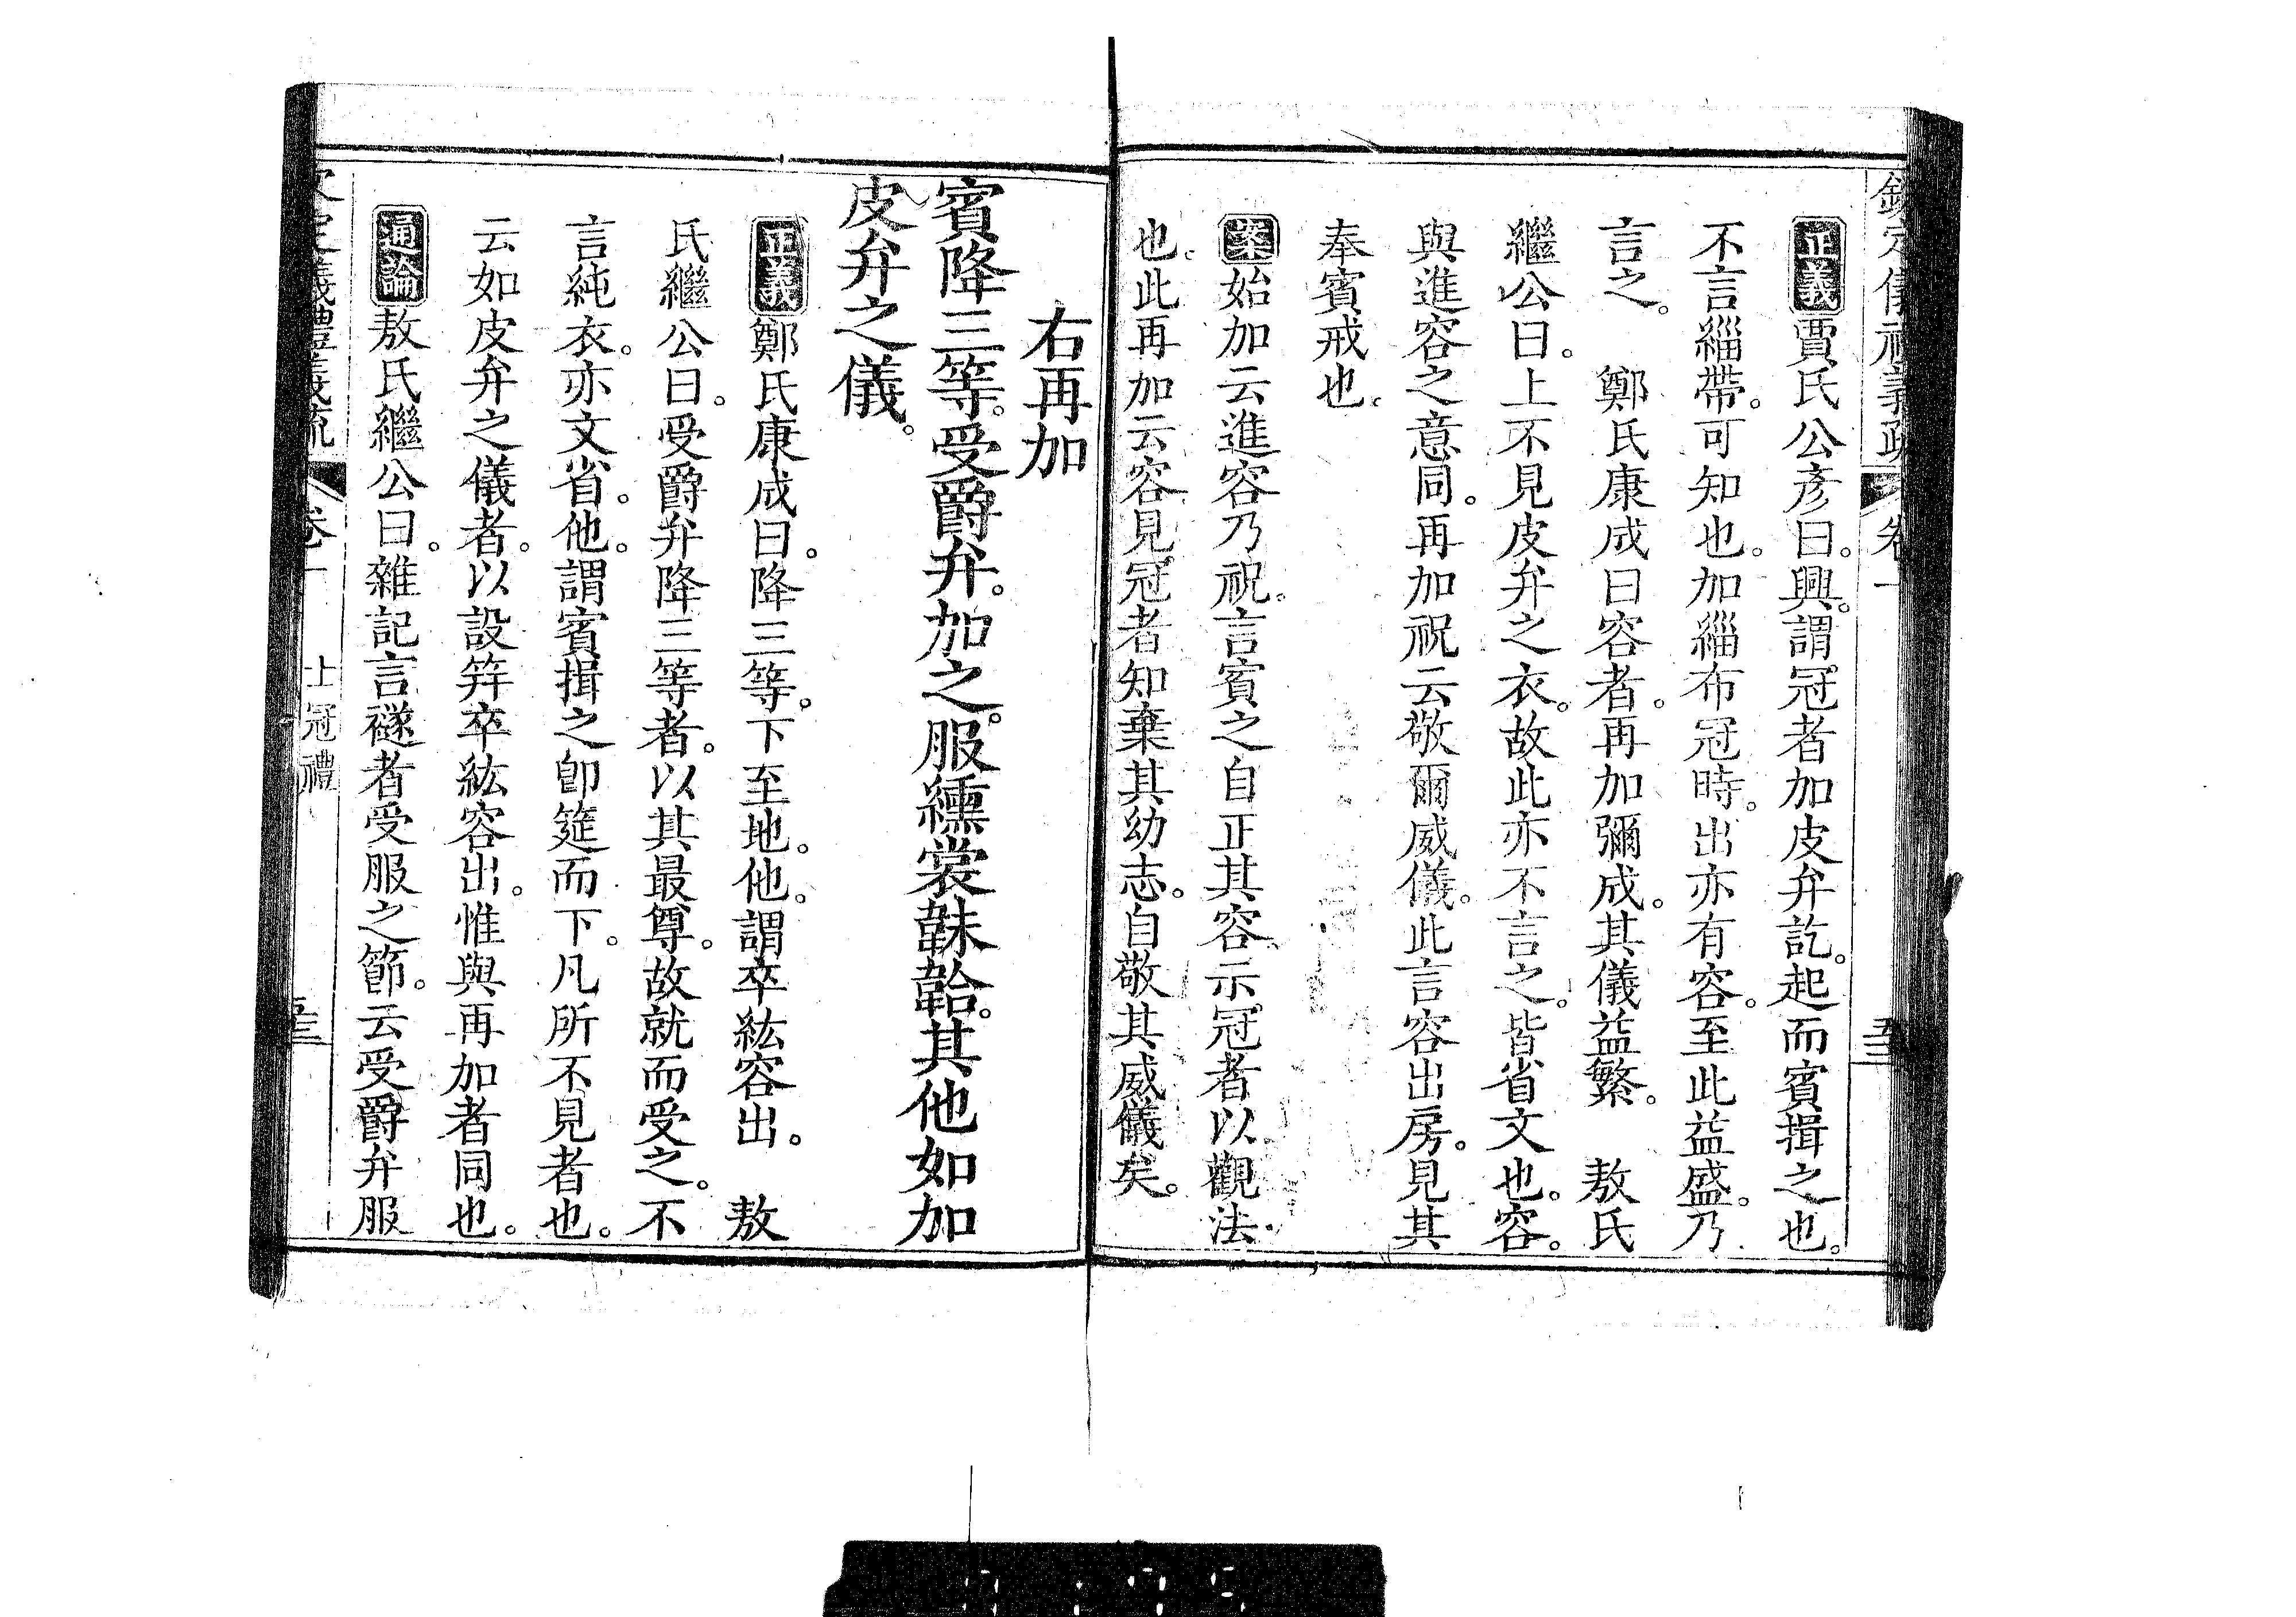 欽定儀禮義疏 卷一
正義賈氏公彥曰。興。謂冠者加皮弁訖。起而賓揖之也。
不言緇帶。可知也。加緇布冠時。出亦有容。至此益盛。乃
言之。 鄭氏康成曰容者。再加彌成。其儀益繁。 敖氏
繼公曰。上不見皮弁之衣。故此亦不言之。皆省文也。容。
與進容之意同。再加祝云敬爾威儀。此言容出房。見其
奉賓戒也。
案始加云進容乃祝。言賓之自正其容。示冠者以觀法
也。此再加云容。見冠者知棄其幼志。自敬其威儀矣。
右再加
賓降三等。受爵弁。加之。服纁裳韎韐。其他如加
皮弁之儀。
正義鄭氏康成曰。降三等。下至地。他。謂卒紘容出。 敖
氏繼公曰。受爵弁降三等者。以其最尊。故就而受之。不
言純衣。亦文省。他。謂賓揖之卽筵而下。凡所不見者也。
云如皮弁之儀者。以設笄卒紘容出。惟與再加者同也。
通論敖氏繼公曰。雜記言襚者受服之節。云受爵弁服
欽定儀禮義疏 卷一 士冠禮